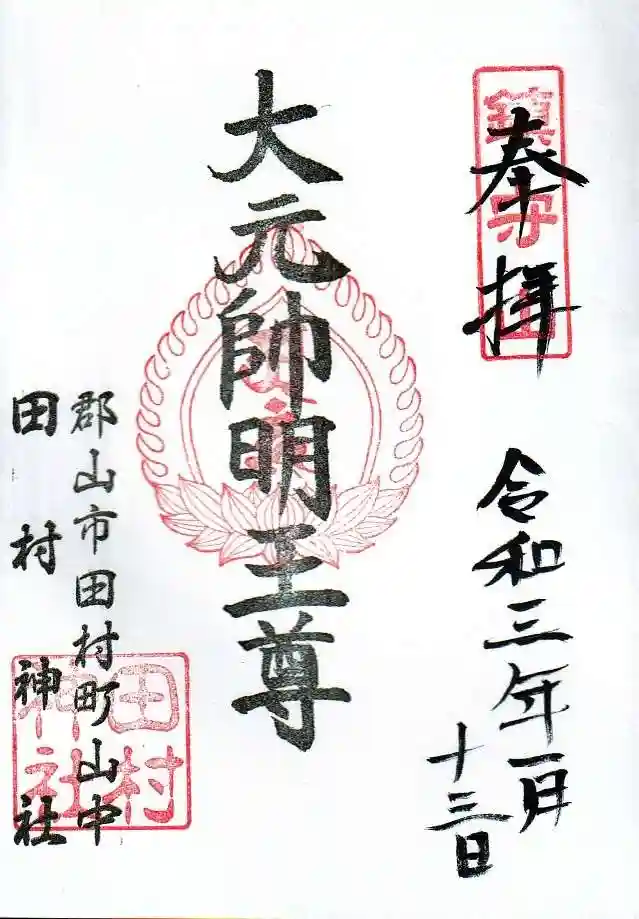 奉拝
鎮守山
令和三年一月
十三日
大元帥明王尊
郡山市田村町山中
田村神社
田村
神社